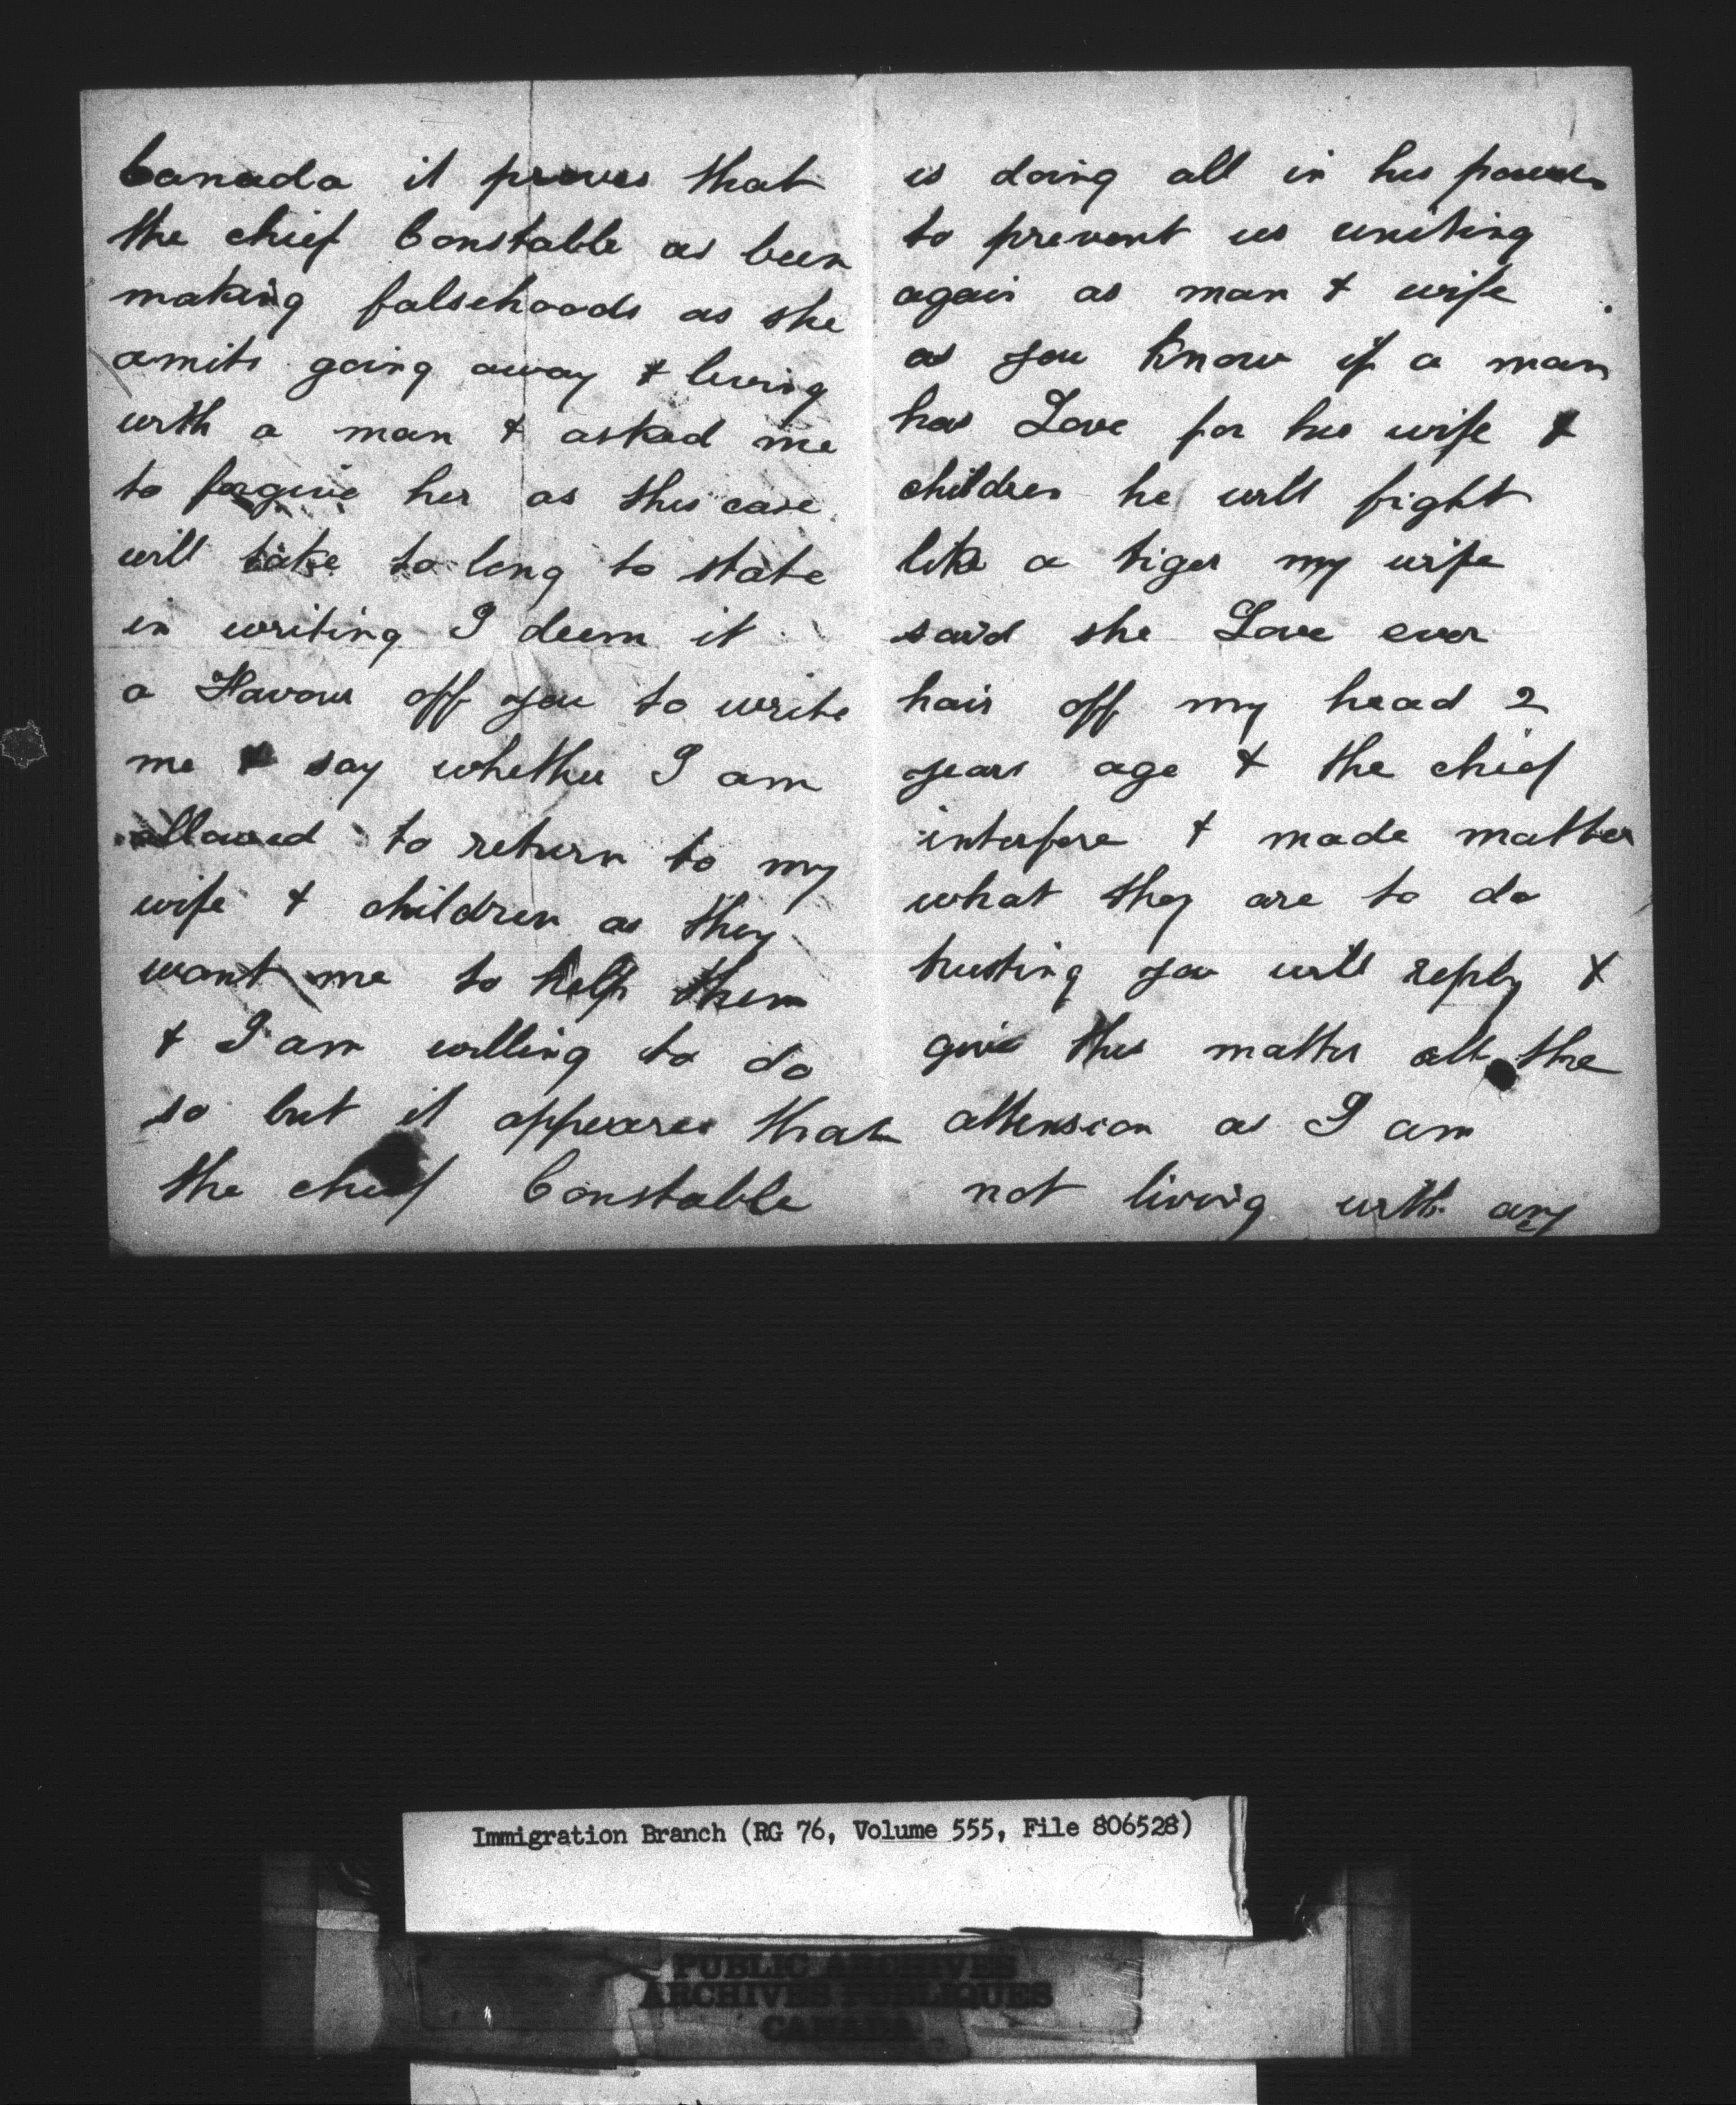 Canada it proves that
the chief Constable as been
making falsehoods as she
amits going away & living
with a man & asked me
to forgive her as this case
will take to long to state
in writing I deem it
a Favour off you to write
me & say whether I am
allowed to return to my
wife & children as they
want me to help them
& I am willing to do
so but it appeares that
the chief Constable
is doing all in his power
to prevent us uniting
again as man & wife
as you know if a man
has Love for his wife &
children he will fight
like a tiger my wife
said she Love ever
hair off my head 2
years ago & the chief
interfere & made matter
what they are to do
trusting you will reply &
give this matter all the
attension as I am
not living with any
Immigration Branch (RG 76, Volume 555, File 806528)
PUBLIC ARCHIVES
ARCHIVES PUBLIQUES
CANADA